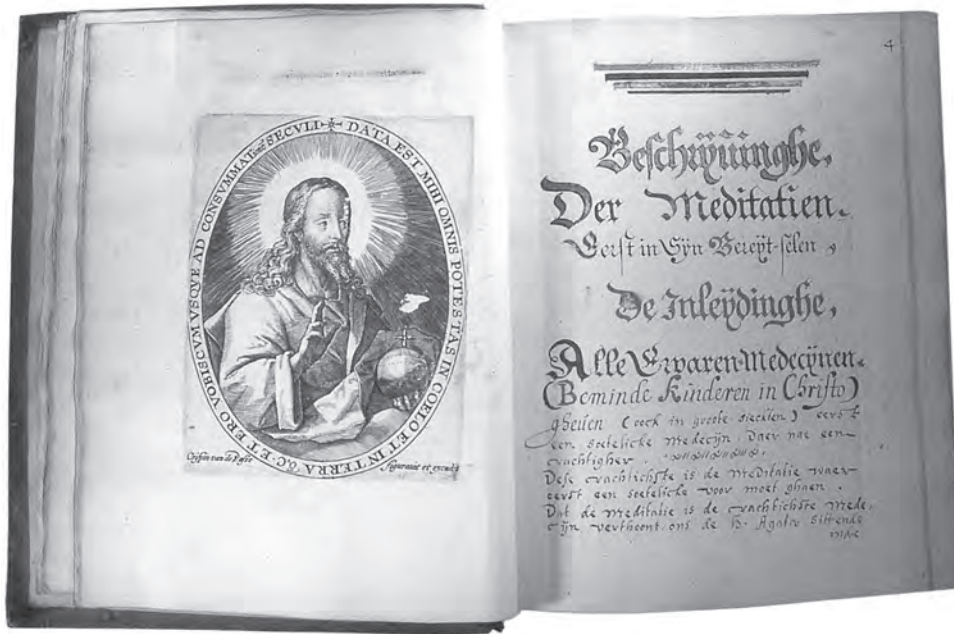 DATA EST MIHI OMNIS POTESTAS IN COELO ET IN TERRA &C· ET ERO VOBISCUM VSQVE AD CONSVMMAT SECVLI
Crispin van de Passe
figuravit et excudit
4
Beschrÿuinghe,
Der Meditatien.
Eerst in Sÿn Bereÿt-selen,
De Inleÿdinghe,
Alle Ervaren Medecÿnen.
(Beminde Kinderen in Christo)
gheuen (oock in groote sieckten) eerst
een soetelicke medecijn. Daer nae een
crachtigher.
Dese crachtichste is de Meditatie waer
eerst een soetelicke voor moet ghaen.
Dat de Meditatie is de crachtichste Mede,
cijn verthoont ons de H. Agatu sittende